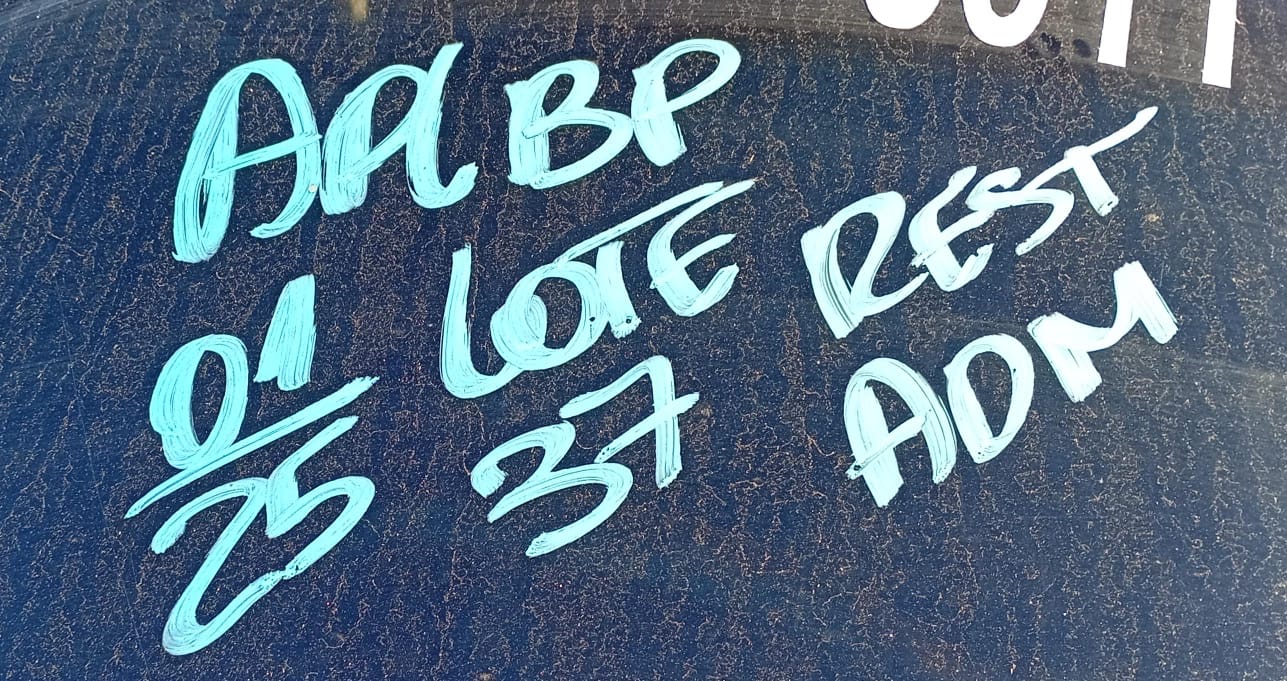 AABP
01/25
LOTE
37
REST
ADM